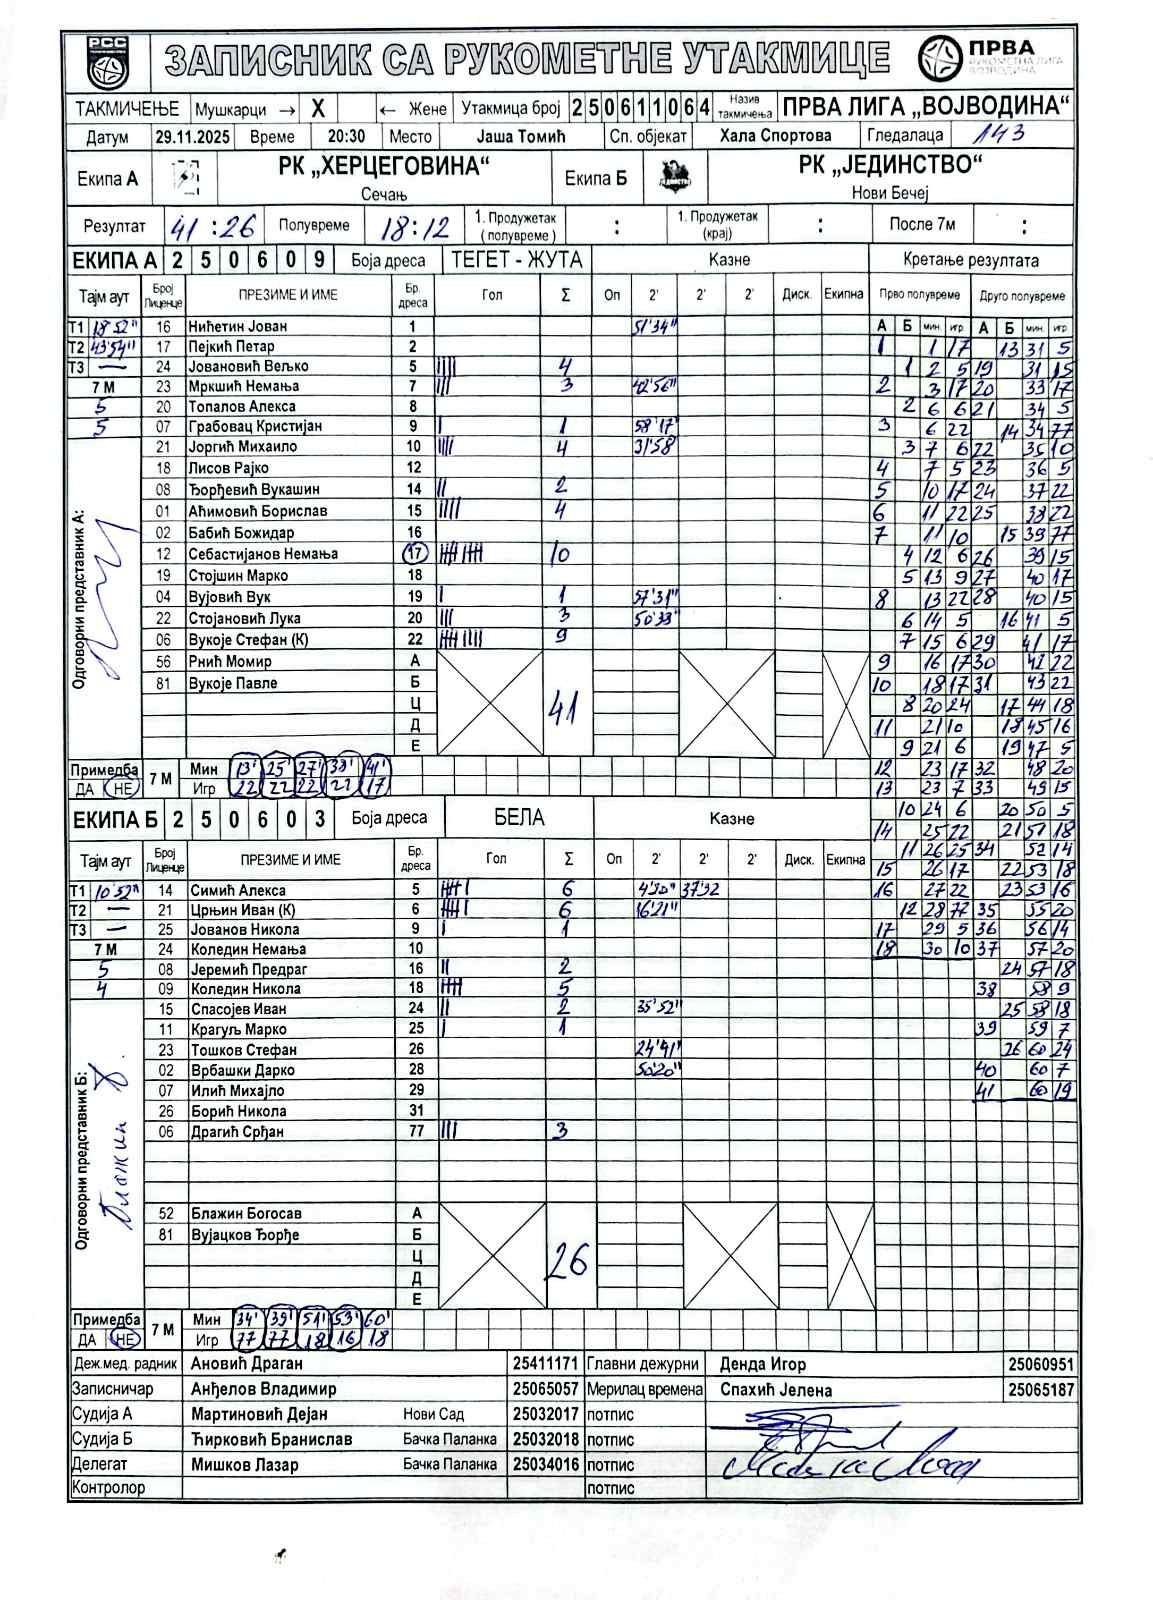 РСС
ЗАПИСНИК СА РУКОМЕТНЕ УТАКМИЦЕ
ПРВА
РУКОМЕТНА ЛИГА
ВОЈВОДИНА
ТАКМИЧЕЊЕ Мушкарци → X ← Жене Утакмица број 250611064 Назив такмичења ПРВА ЛИГА „ВОЈВОДИНА“
Датум 29.11.2025 Време 20:30 Место Јаша Томић Сп. објекат Хала Спортова Гледалаца 143
Екипа А РК „ХЕРЦЕГОВИНА“ Сечањ Екипа Б РК „ЈЕДИНСТВО“ Нови Бечеј
Резултат 41:26 Полувреме 18:12 1. Продужетак (полувреме) : 1. Продужетак (крај) : После 7м :
ЕКИПА А 2 5 0 6 0 9 Боја дреса ТЕГЕТ - ЖУТА Казне Кретање резултата
Тајм аут Број Лиценце ПРЕЗИМЕ И ИМЕ Бр. дреса Гол Σ Оп 2' 2' 2' Диск. Екипна Прво полувреме Друго полувреме
T1 18'52" 16 Нићетин Јован 1 51'34" А Б мин. игр А Б мин. игр
T2 43'54" 17 Пејкић Петар 2 1 1 17 13 31 5
T3 — 24 Јовановић Вељко 5 |||| 4 1 2 5 19 31 15
7 М 23 Мркшић Немања 7 ||| 3 42'56" 2 3 17 20 33 17
5 20 Топалов Алекса 8 2 6 6 21 34 5
5 07 Грабовац Кристијан 9 | 1 58'17" 3 6 22 14 34 77
21 Јоргић Михаило 10 |||| 4 31'58 3 7 6 22 35 10
18 Лисов Рајко 12 4 7 5 23 36 5
08 Ђорђевић Вукашин 14 || 2 5 10 17 24 37 22
01 Аћимовић Борислав 15 |||| 4 6 11 22 25 38 22
02 Бабић Божидар 16 7 11 10 15 39 77
12 Себастијанов Немања 17 |||| |||| 10 4 12 6 26 39 15
19 Стојшин Марко 18 5 13 9 27 40 17
04 Вујовић Вук 19 | 1 57'31" 8 13 22 28 40 15
22 Стојановић Лука 20 ||| 3 50'33" 6 14 5 16 41 5
06 Вукоје Стефан (К) 22 |||| |||| 9 7 15 6 29 41 17
56 Рнић Момир А 9 16 17 30 42 22
81 Вукоје Павле Б 10 18 17 31 43 22
Ц 41 8 20 24 17 44 18
Д 11 21 10 18 45 16
Е 9 21 6 19 47 5
Одговорни представник А:
Примедба ДА НЕ 7 М Мин 13' 25' 27' 38' 41' 12 23 17 32 48 20
Игр 22 22 22 22 17 13 23 7 33 49 15
ЕКИПА Б 2 5 0 6 0 3 Боја дреса БЕЛА Казне 10 24 6 20 50 5
14 25 22 21 51 18
Тајм аут Број Лиценце ПРЕЗИМЕ И ИМЕ Бр. дреса Гол Σ Оп 2' 2' 2' Диск. Екипна 11 26 25 34 52 14
15 26 17 22 53 18
T1 10'52" 14 Симић Алекса 5 |||| | 6 4'30" 37'32 16 27 22 23 53 16
T2 — 21 Црњин Иван (К) 6 |||| | 6 16'21" 12 28 77 35 55 20
T3 — 25 Јованов Никола 9 | 1 17 29 5 36 56 14
7 М 24 Коледин Немања 10 18 30 10 37 57 20
5 08 Јеремић Предраг 16 || 2 24 57 18
4 09 Коледин Никола 18 |||| 5 38 58 9
15 Спасојев Иван 24 || 2 35'52" 25 58 18
11 Крагуљ Марко 25 | 1 39 59 7
23 Тошков Стефан 26 24'41" 26 60 24
02 Врбашки Дарко 28 50'20" 40 60 7
07 Илић Михајло 29 41 60 19
26 Борић Никола 31
06 Драгић Срђан 77 ||| 3
Одговорни представник Б:
52 Блажин Богосав А
81 Вујацков Ђорђе Б
Ц 26
Д
Е
Примедба ДА НЕ 7 М Мин 34' 39' 51' 53' 60'
Игр 77 77 18 16 18
Деж.мед. радник Ановић Драган 25411171 Главни дежурни Денда Игор 25060951
Записничар Анђелов Владимир 25065057 Мерилац времена Спахић Јелена 25065187
Судија А Мартиновић Дејан Нови Сад 25032017 потпис
Судија Б Ћирковић Бранислав Бачка Паланка 25032018 потпис
Делегат Мишков Лазар Бачка Паланка 25034016 потпис
Контролор потпис